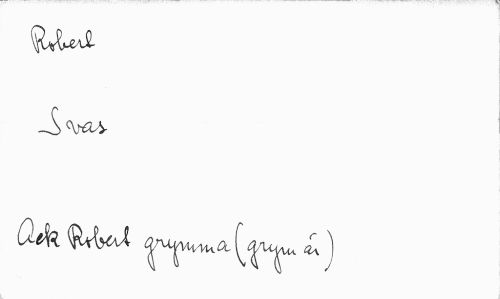 Robert
Svas
Ack Robert grymma (grym är)